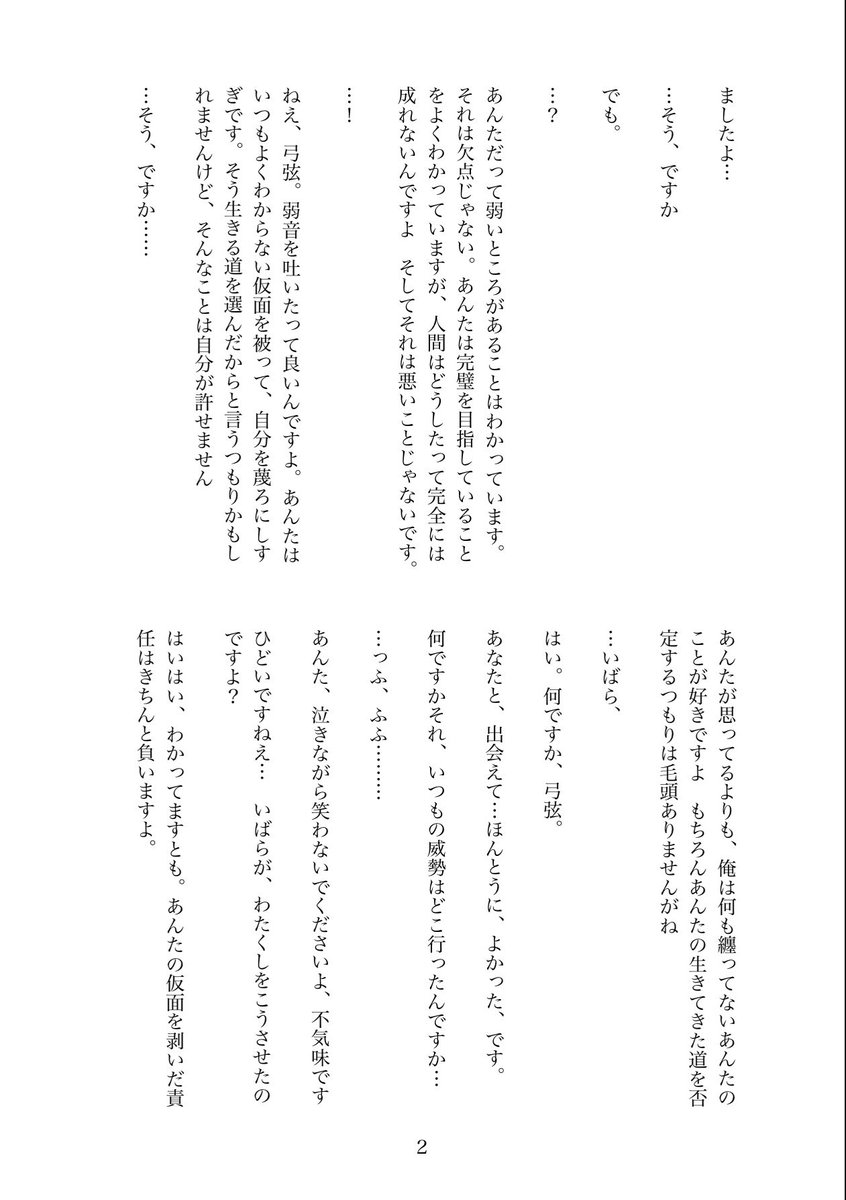 ましたよ…
…そう、ですか
でも。
…？
あんただって弱いところがあることはわかっています。
それは欠点じゃない。あんたは完璧を目指していること
をよくわかっていますが、人間はどうしたって完全には
成れないんですよ　そしてそれは悪いことじゃないです。
…！
ねえ、弓弦。弱音を吐いたって良いんですよ。あんたは
いつもよくわからない仮面を被って、自分を蔑ろにしす
ぎです。そう生きる道を選んだからと言うつもりかもし
れませんけど、そんなことは自分が許せません
…そう、ですか……
あんたが思ってるよりも、俺は何も纏ってないあんたの
ことが好きですよ　もちろんあんたの生きてきた道を否
定するつもりは毛頭ありませんがね
…いばら、
はい。何ですか、弓弦。
あなたと、出会えて…ほんとうに、よかった、です。
何ですかそれ、いつもの威勢はどこ行ったんですか…
…っふ、ふふ………
あんた、泣きながら笑わないでくださいよ、不気味です
ひどいですねえ…　いばらが、わたくしをこうさせたの
ですよ？
はいはい、わかってますとも。あんたの仮面を剥いだ責
任はきちんと負いますよ。
2